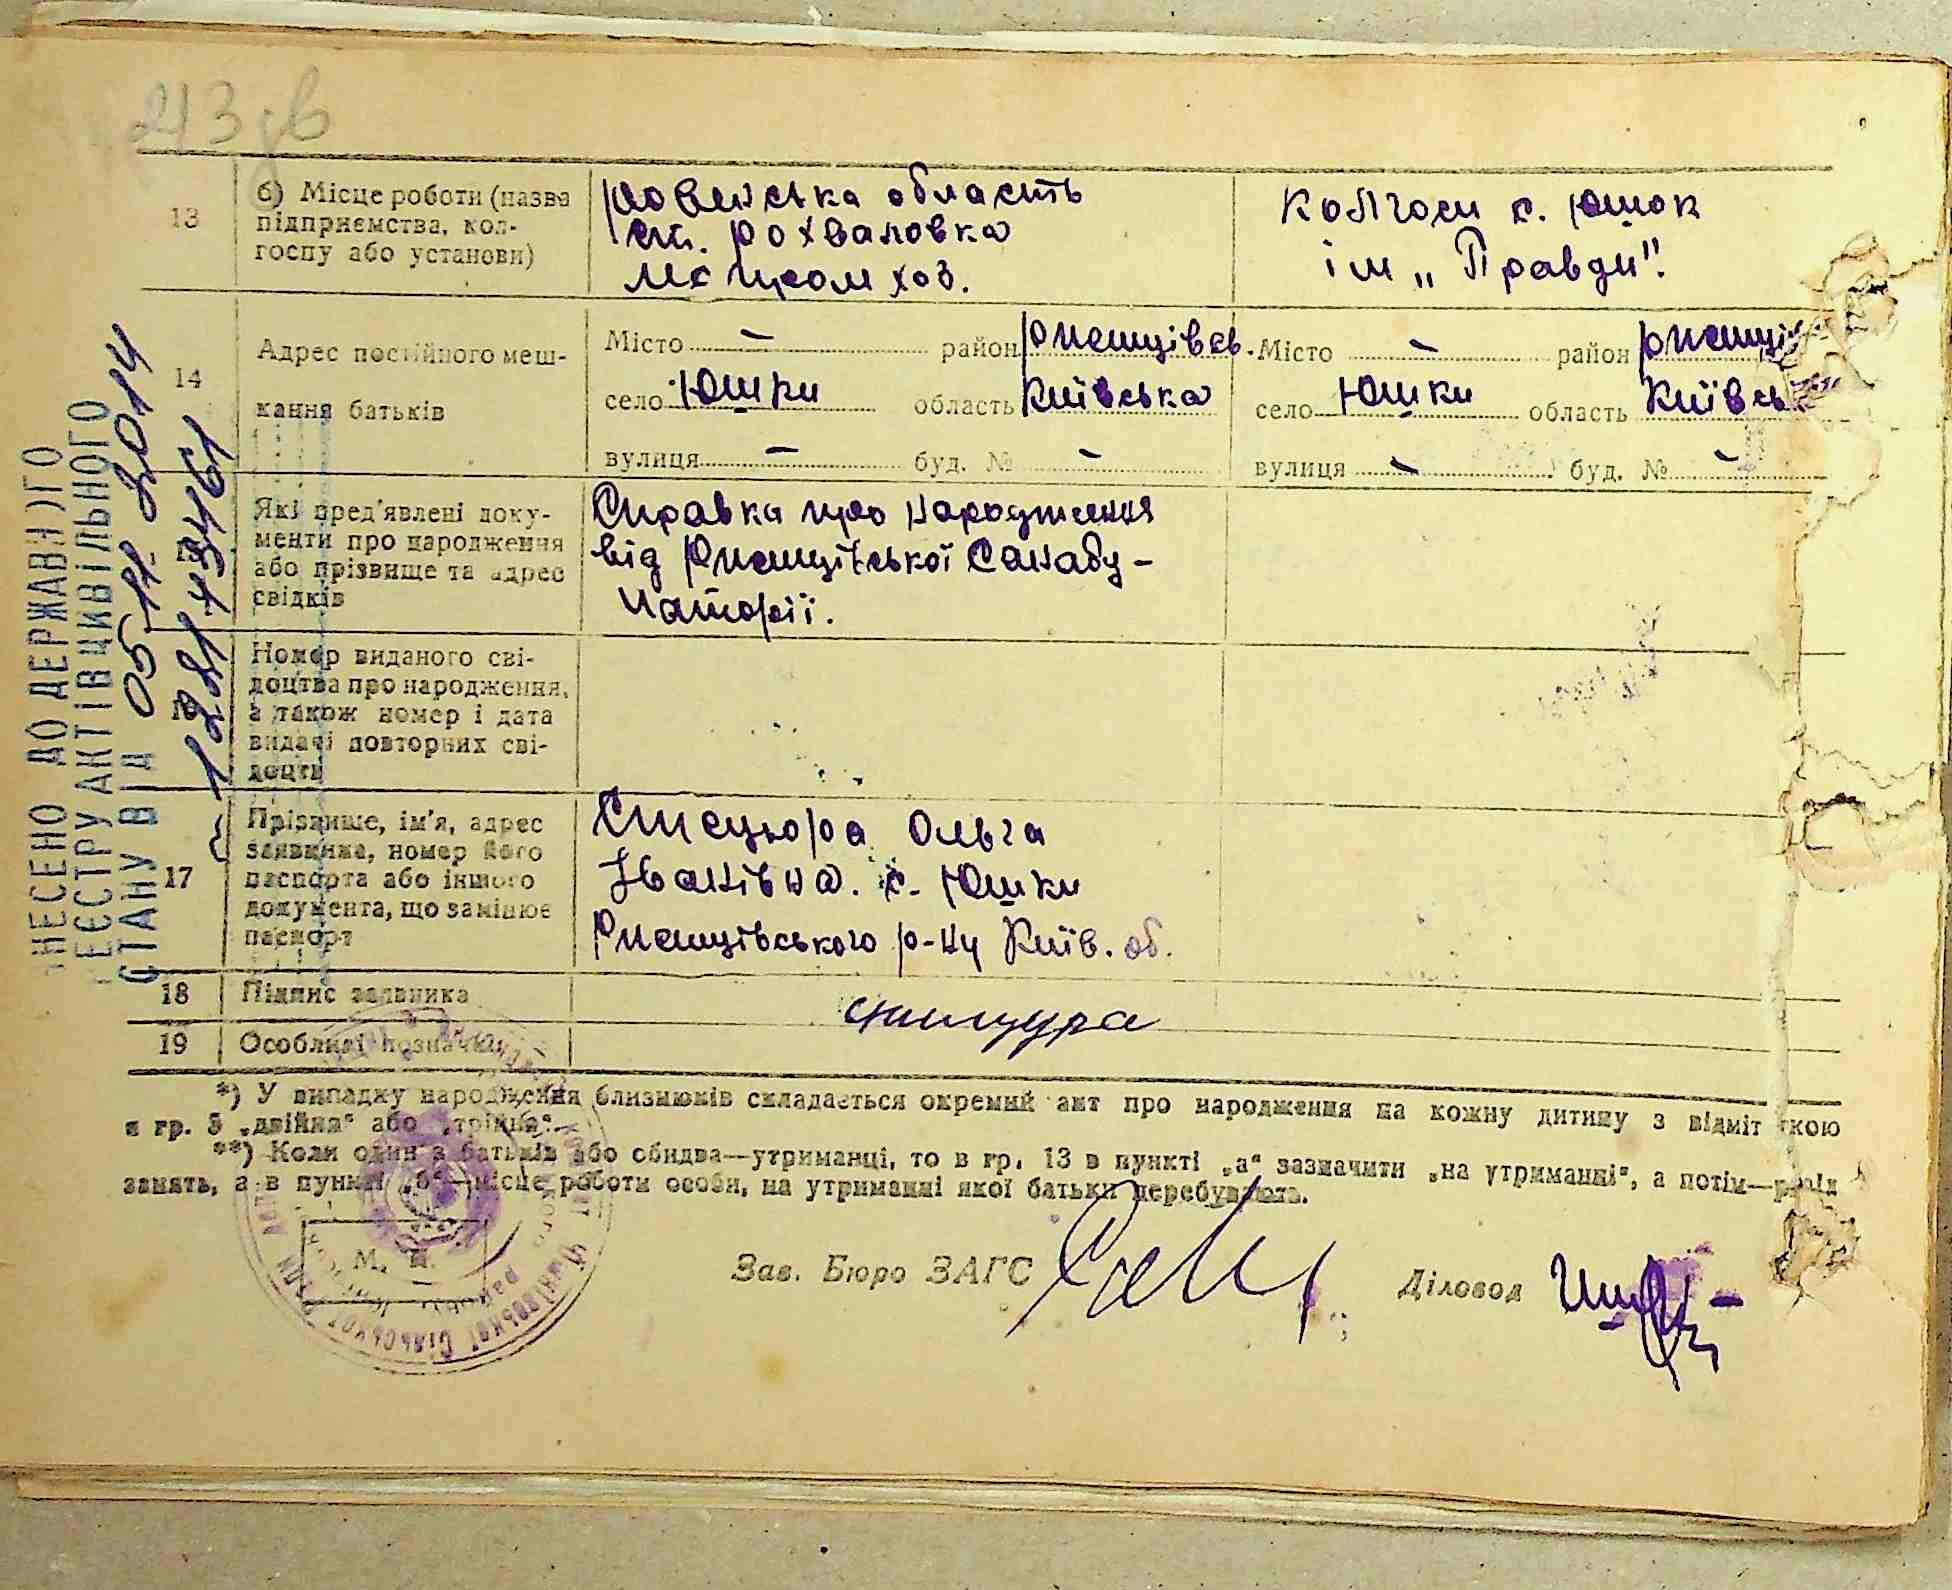 213 зв
13
б) Місце роботи (назва
підприємства, кол-
госпу або установи)
Ровенська область
ст. Рохваловка
хоз.
Колгосп с. Юшок
ім „Правди".
14
Адрес постійного меш-
кання батьків
Місто – район Ржищівсь.
село Юшки область Київська
вулиця – буд. № –
Місто – район Ржищів
село Юшки область Київсь
вулиця – буд. № –
Які пред'явлені доку-
менти про народження
або прізвище та адрес
свідків
Справка про народження
від Ржищівської Санабу-
латорії.
Номер виданого сві-
доцтва про народження,
а також номер і дата
видачі повторних сві-
доцтв
17
Прізвище, ім'я, адрес
заявника, номер його
паспорта або іншого
документа, що замінює
паспорт
Стецюра Ольга
Іванівна. с. Юшки
Ржищівського р-ну Київ. об.
18
Підпис заявника
19
Особливі позначки
*) У випадку народження близнюків складається окремий акт про народження на кожну дитину з відміткою
в гр. 5 „двійня" або „трійня".
**) Коли один з батьків або обидва—утриманці, то в гр. 13 в пункті „а" зазначити „на утриманні", а потім—рід
занять, а в пункті „б"—місце роботи особи, на утриманні якої батьки перебувають.
М. П.
Зав. Бюро ЗАГС
Діловод
ВНЕСЕНО ДО ДЕРЖАВНОГО
РЕЄСТРУ АКТІВ ЦИВІЛЬНОГО
СТАНУ ВІД 05-11-2014